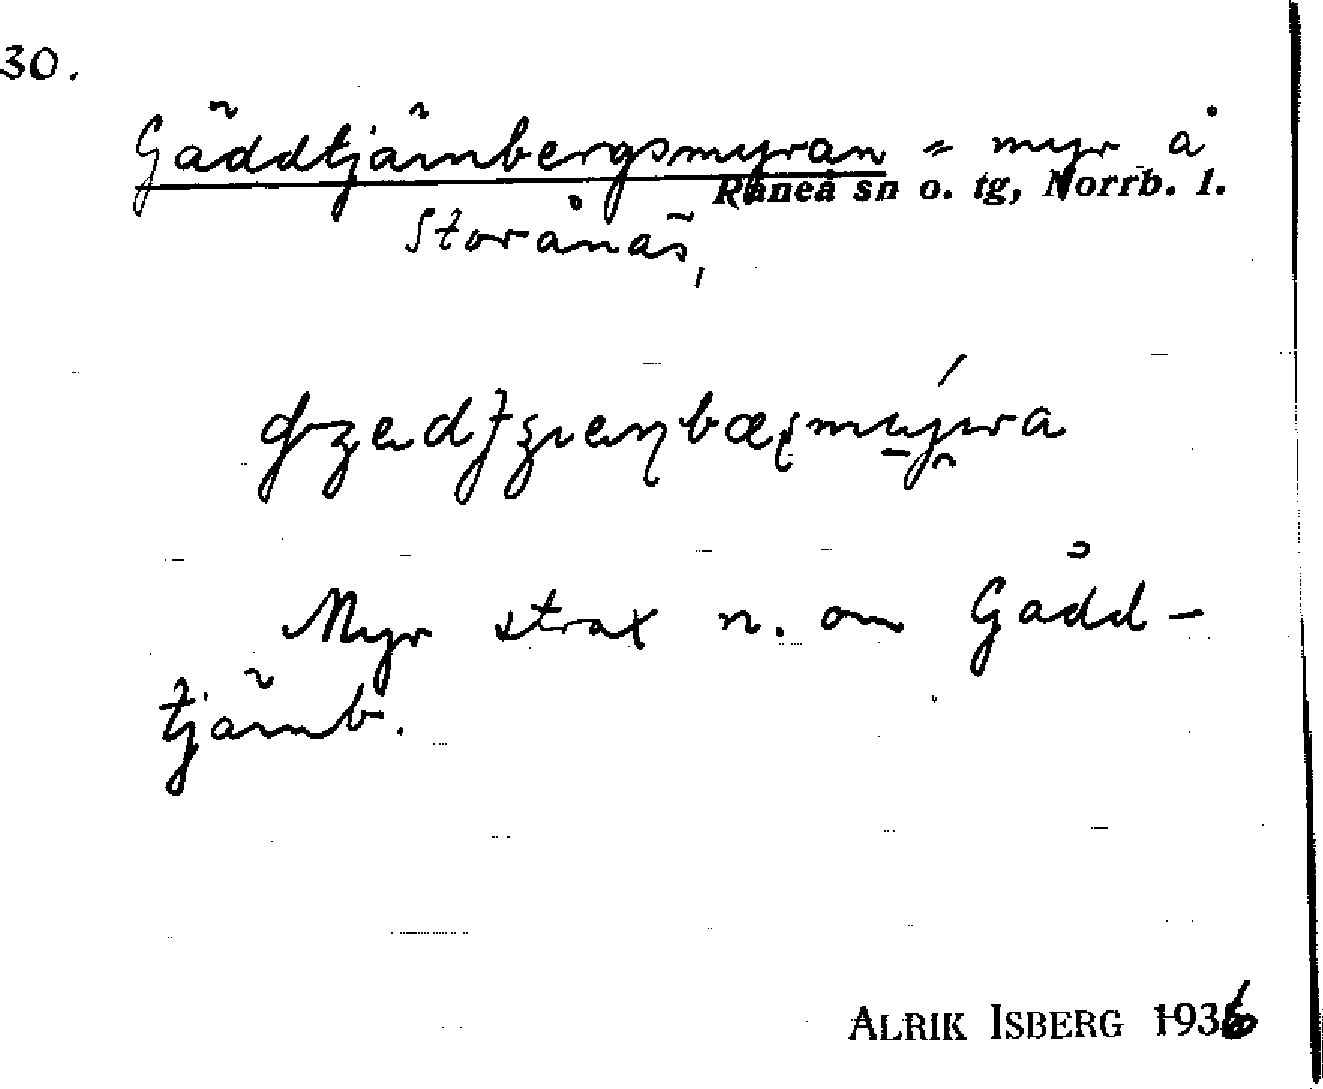 30.
Gäddtjärnbergsmyran = myr å
Råneå sn o. tg, Norrb. l.
Storånäs,
Myr strax n. om Gädd-
tjärnb.
ALRIK ISBERG 1936